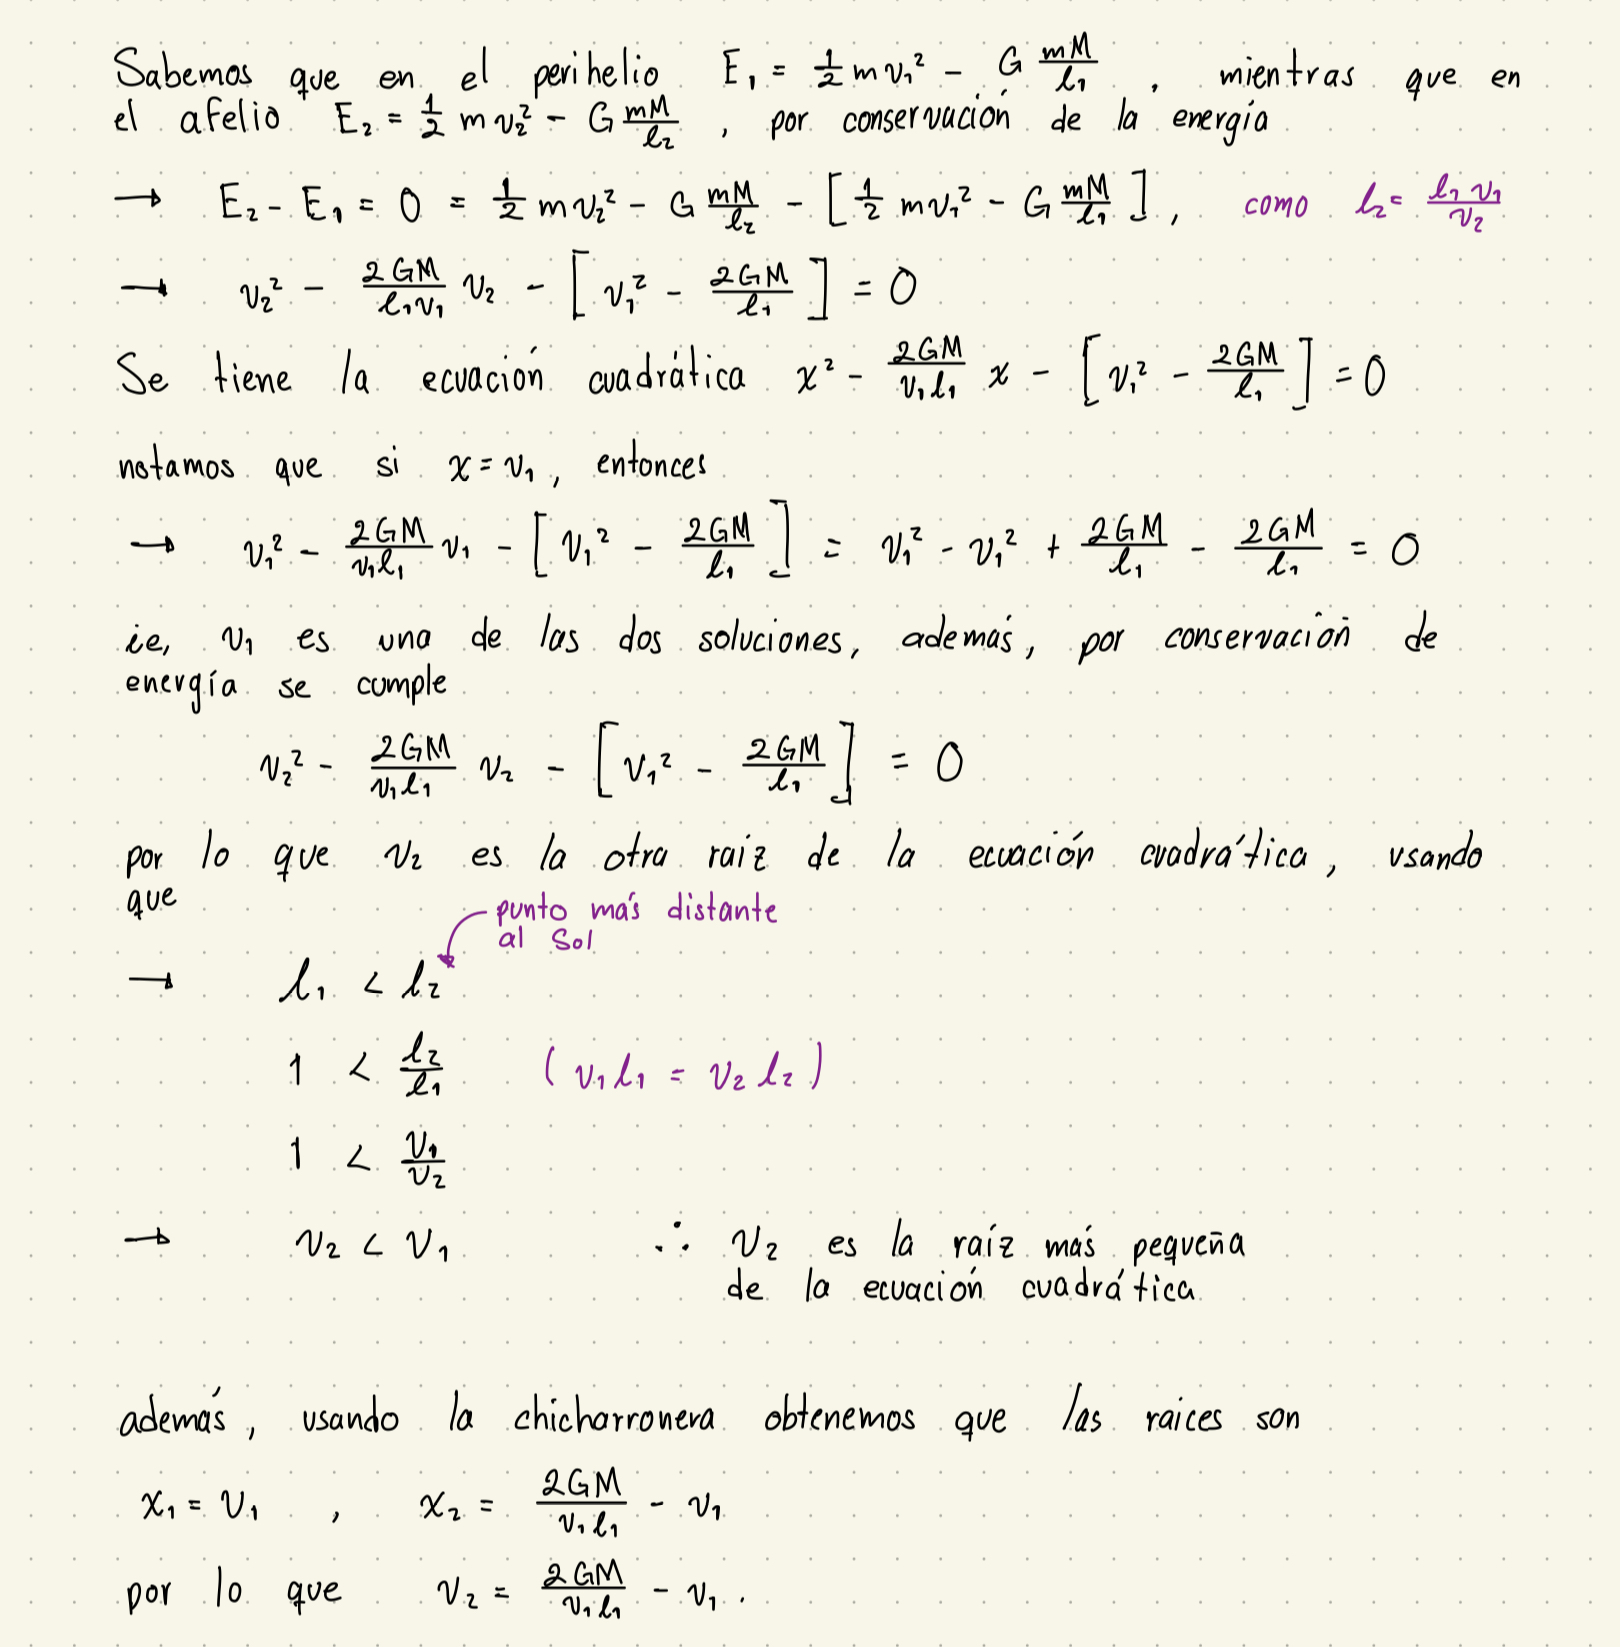 Sabemos que en el perihelio E₁ = ½ m v₁² − G mM/ℓ₁ , mientras que en
el afelio E₂ = ½ m v₂² − G mM/ℓ₂ , por conservación de la energía
→ E₂ − E₁ = 0 = ½ m v₂² − G mM/ℓ₂ − [ ½ m v₁² − G mM/ℓ₁ ] , como ℓ₂ = ℓ₁ v₁/v₂
→ v₂² − 2GM/ℓ₁v₁ v₂ − [ v₁² − 2GM/ℓ₁ ] = 0
Se tiene la ecuación cuadrática x² − 2GM/v₁ℓ₁ x − [ v₁² − 2GM/ℓ₁ ] = 0
notamos que si x = v₁ , entonces
→ v₁² − 2GM/v₁ℓ₁ v₁ − [ v₁² − 2GM/ℓ₁ ] = v₁² − v₁² + 2GM/ℓ₁ − 2GM/ℓ₁ = 0
ie, v₁ es una de las dos soluciones, además, por conservación de
energía se cumple
v₂² − 2GM/v₁ℓ₁ v₂ − [ v₁² − 2GM/ℓ₁ ] = 0
por lo que v₂ es la otra raiz de la ecuación cuadrática, usando
que
punto más distante
al Sol
→ ℓ₁ < ℓ₂
1 < ℓ₂/ℓ₁ ( v₁ℓ₁ = v₂ℓ₂ )
1 < v₁/v₂
→ v₂ < v₁ ∴ v₂ es la raíz más pequeña
de la ecuación cuadrática
además, usando la chicharronera obtenemos que las raices son
x₁ = v₁ , x₂ = 2GM/v₁ℓ₁ − v₁
por lo que v₂ = 2GM/v₁ℓ₁ − v₁ .